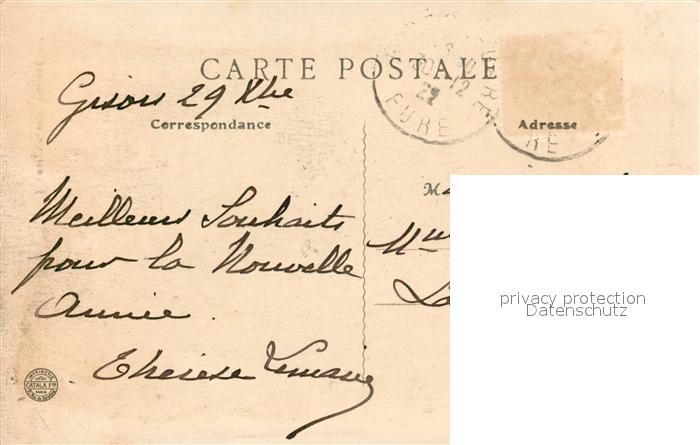 CARTE POSTALE
Gisors 29 Xbre
Correspondance
Adresse
30 -12
22
EURE
RE
M
Meilleurs Souhaits
pour la Nouvelle
Année.
Thérèse Lemaire
Mlle
IMPRIMERIE
CATALA Frs
PARIS
privacy protection
Datenschutz